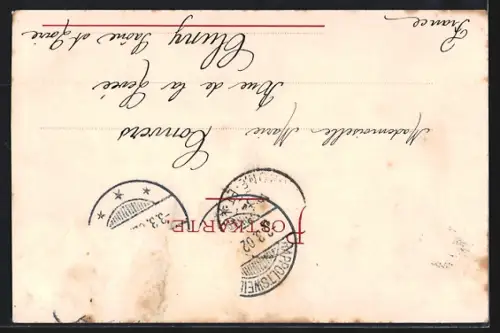 POSTKARTE
RAPPOLTSWEILER
3.3.02
3.3.0
Mademoiselle Marie Convers
Rue de la Levée
Cluny Saône et Loire
France